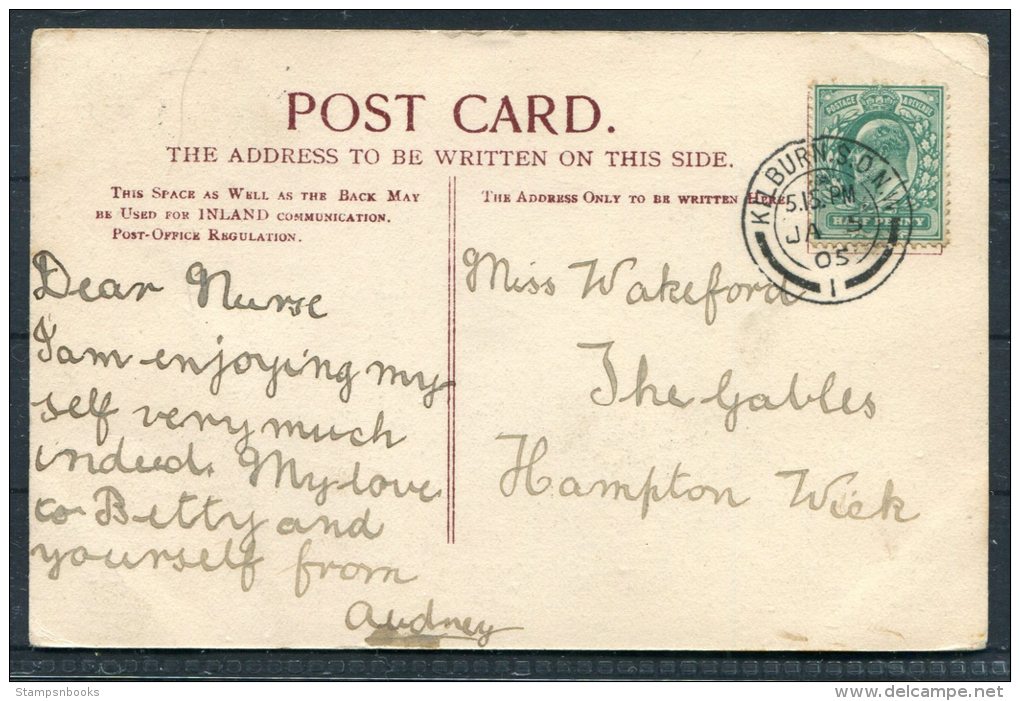 POST CARD.
THE ADDRESS TO BE WRITTEN ON THIS SIDE.
THIS SPACE AS WELL AS THE BACK MAY
BE USED FOR INLAND COMMUNICATION.
POST-OFFICE REGULATION.
THE ADDRESS ONLY TO BE WRITTEN HERE
POSTAGE & REVENUE
HALF PENNY
KILBURN S.O.N.W
5.15 PM
JA 5
05
1
Dear Nurse
I am enjoying my
self very much
indeed. My love
to Betty and
yourself from
Audrey
Miss Wakeford
The Gables
Hampton Wick
Stampsnbooks
www.delcampe.net